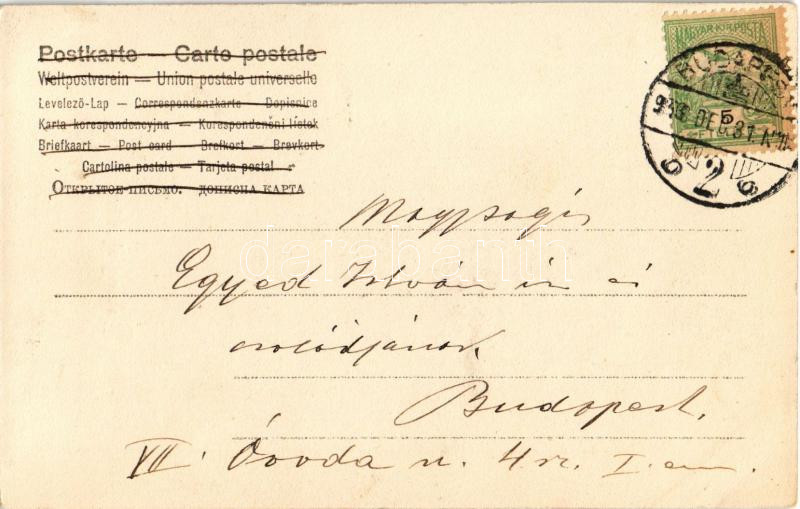 Postkarte — Carte postale
Weltpostverein — Union postale universelle
Levelező-Lap — Correspondenzkarte — Dopisnice
Karta korespondencyjna — Korespondenční lístek
Briefkaart — Post card — Brefkort — Brevkort
Cartolina postale — Tarjeta postal
Открытое письмо. дописна карта
MAGYAR KIR. POSTA
BUDAPEST
5
DEC. 31
2
Magyságis
darabanth
Egyed István úr és
családjának
Budapest.
VII. Óvoda u. 4 sz. I. em.